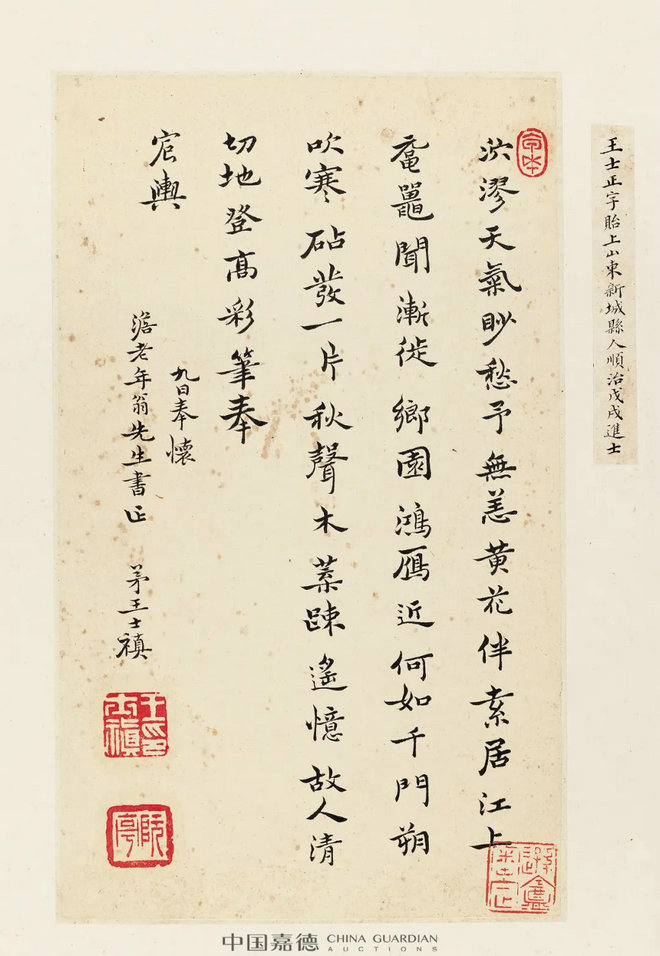 王士正字貽上山東新城縣人順治戊戌進士
泬漻天氣眇愁予無恙黃花伴素居江上
黿鼉聞漸徙鄉園鴻鴈近何如千門朔
吹寒砧發一片秋聲木葉踈遙憶故人清
切地登高彩筆奉
宸輿
九日奉懷
澹老年翁先生書正 弟王士禛
王印士禛
阮亭
中国嘉德 CHINA GUARDIAN
AUCTIONS